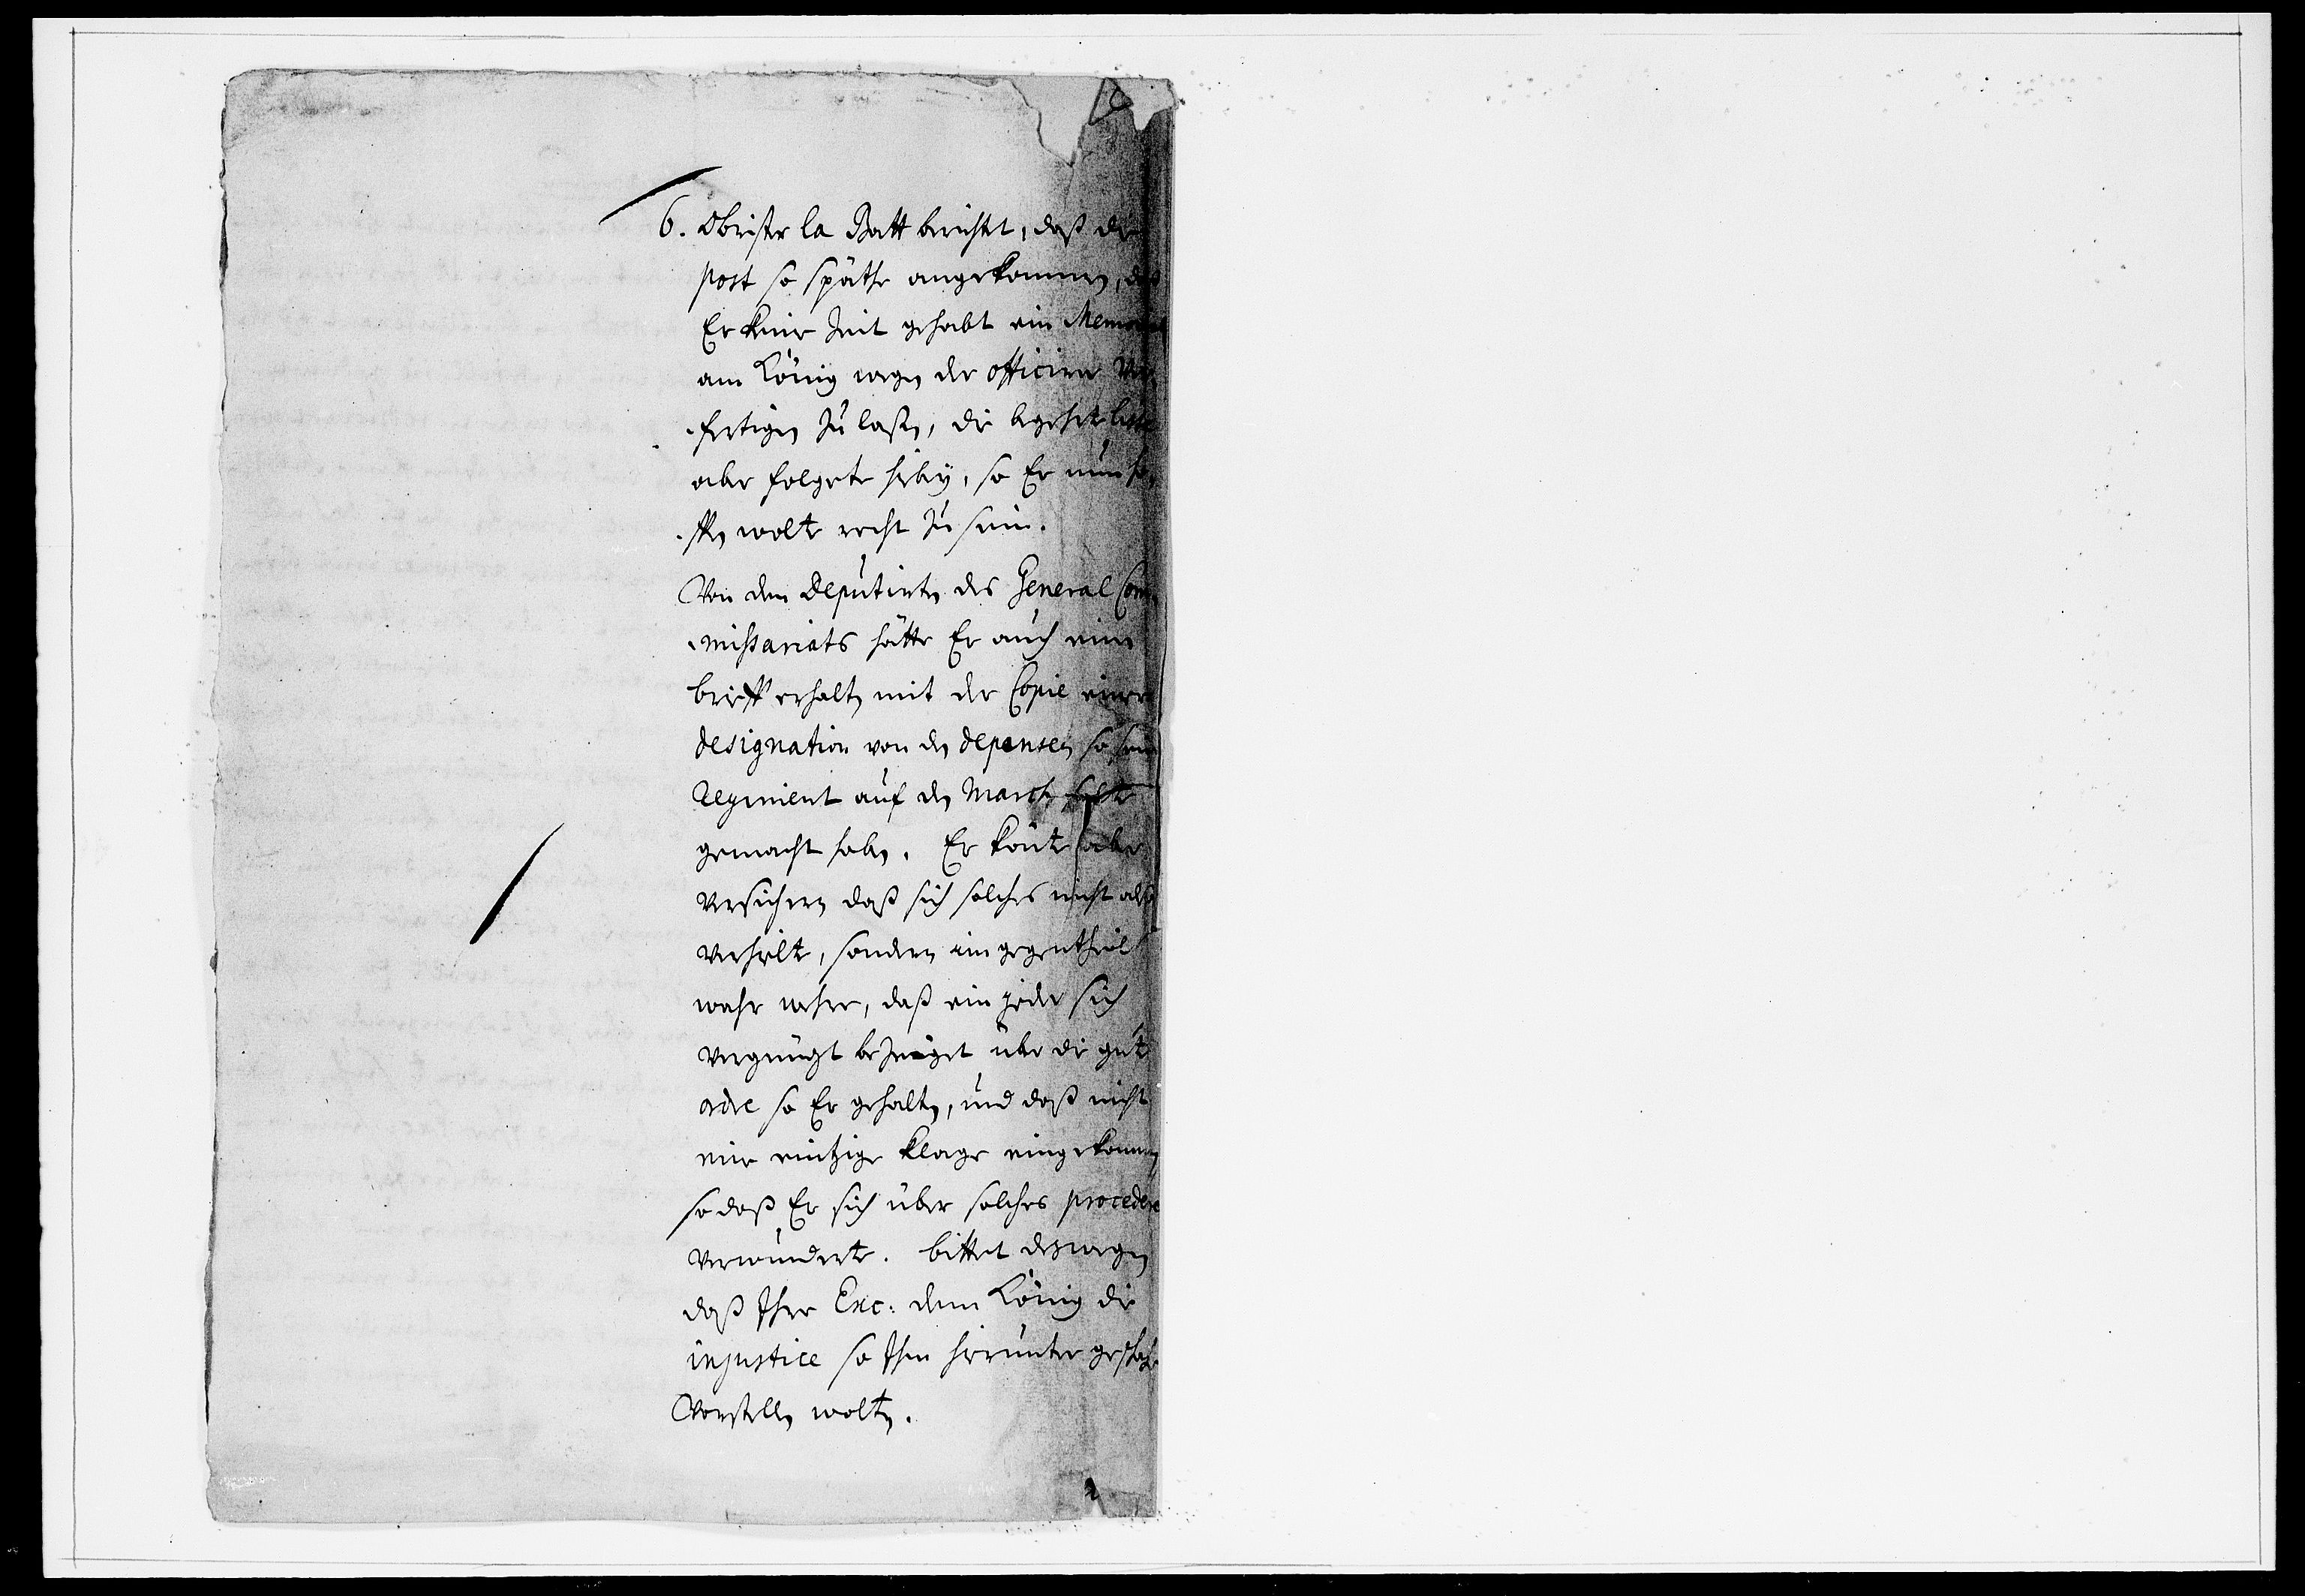 6. Obrister la Batt berichtet, daß die
post so späthe angekommen, daß
Er keine Zeit gehabt ein Memorial
am König wegen der officirer Ver-
-fertigen zu laßen, die begehrte liste
aber folgete hirbey, so Er nun ho-
-ffen wolte recht zu sein.
Von dem Deputirten des General Com-
-missariats hätte Er auch einen
brieff erhalten mit der Copie einer
designation von den depensen so sein
Regiment auf den March solte
gemacht haben. Er könte aber
versichern daß sich solches nicht also
verhielte, sondern im gegentheil
wahr wehre, daß ein jeder sich
vergnügt bezeüget über die gute
ordre so Er gehalten, und daß nicht
eine eintzige klage eingekommen
so daß Er sich über solches procedere
verwunderte. bittet deswegen
daß Ihre Exc: dem König die
injustice so Ihm hierunter geschehe
Vorstellen wolten.